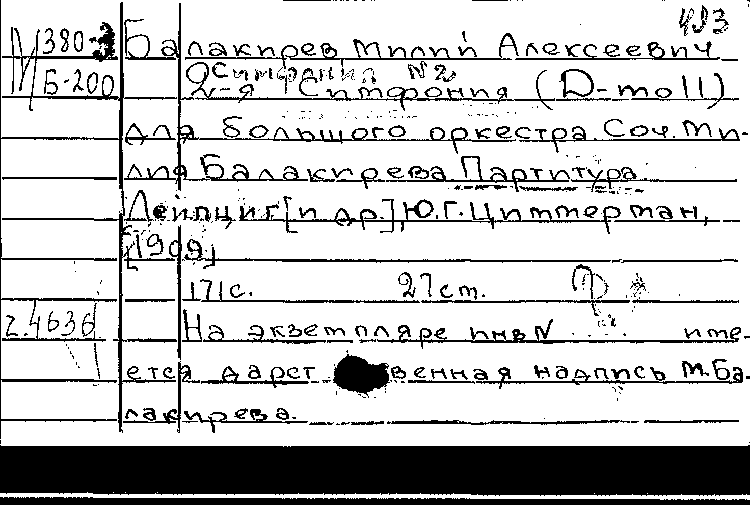 493
М 380-3
Б-200
Балакирев Милий Алексеевич
Симфония №2
2-я Симфония (D-moll)
для большого оркестра. Соч. Ми-
лия Балакирева. Партитура.
Лейпциг [и др.], Ю.Г. Циммерман,
[1909]
171с. 27cm.
г.4636
На экземпляре инв N ..... име-
ется дарственная надпись М.Ба-
лакирева.